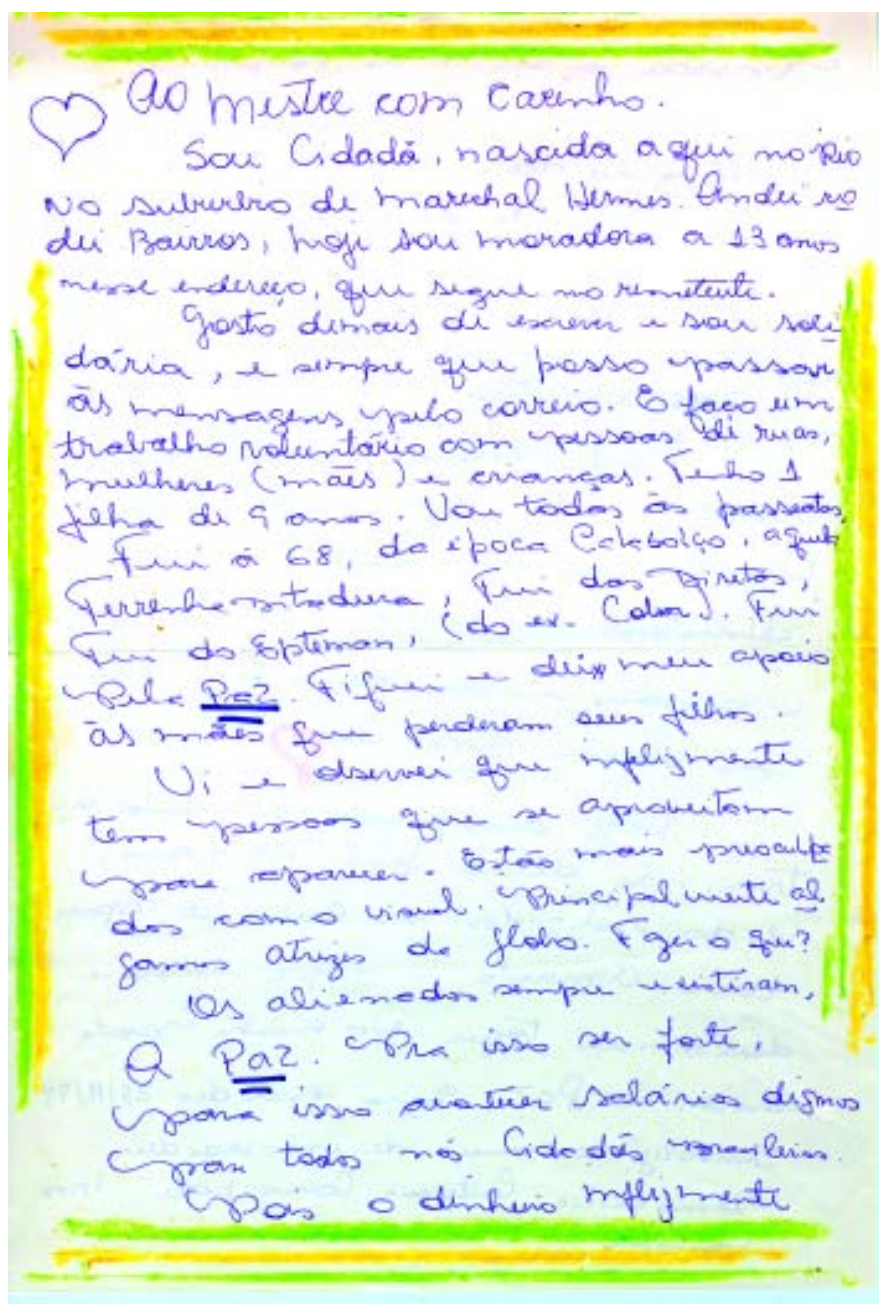 Ao Mestre com Carinho.
Sou Cidadã, nascida aqui no Rio
No suburbio de Marechal Hermes. Andei ro
dei Bairros, hoje sou moradora a 13 anos
nesse endereço, que segue no remetente.
Gosto demais de escrever e sou soli
dária, e sempre que posso passar
às mensagens pelo correio. E faço um
trabalho voluntário com pessoas di ruas,
mulheres (mães) e crianças. Tenho 1
filha de 9 anos. Vou todas as passeatas
Fui a 68, da época Calabolço, aquela
Ferrenha ditadura, Fui das Diretas,
Fui do (do ex. Color). Fui
Pela Paz. Fiquei e deix meu apoio
às mães que perderam seus filhos.
Vi e observei que infelizmente
tem pessoas que se aproveitam
para aparecer. Estão mais preoculpa
dos com o visual. Principalmente al
gumas atrizes da globo. Fazer o que?
Os alienados sempre existiram,
A Paz. Pra isso ser forte,
para isso acontecer salários dignos
para todos nós Cidadãs brasileiras.
Pois o dinheiro infelizmente